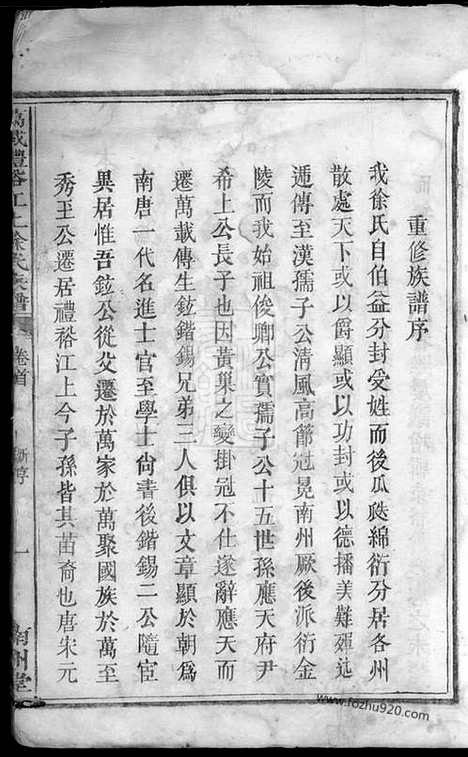 重修族譜序
我徐氏自伯益分封受姓而後瓜瓞綿衍分居各州
散處天下或以爵顯或以功封或以德播美難殫述
逓傳至漢孺子公清風高節冠冕南州厥後派衍金
陵而我始祖俊卿公實孺子公十五世孫應天府尹
希上公長子也因黃巢之變掛冠不仕遂辭應天而
遷萬載傳生鉉鍇錫兄弟三人俱以文章顯於朝為
南唐一代名進士官至學士尙書後鍇錫二公隨宦
異居惟吾鉉公從父遷於萬家於萬聚國族於萬至
秀王公遷居禮裕江上今子孫皆其苗裔也唐宋元
萬載禮裕江上徐氏族譜
卷首
新序
一
南州堂
www.fozhu920.com